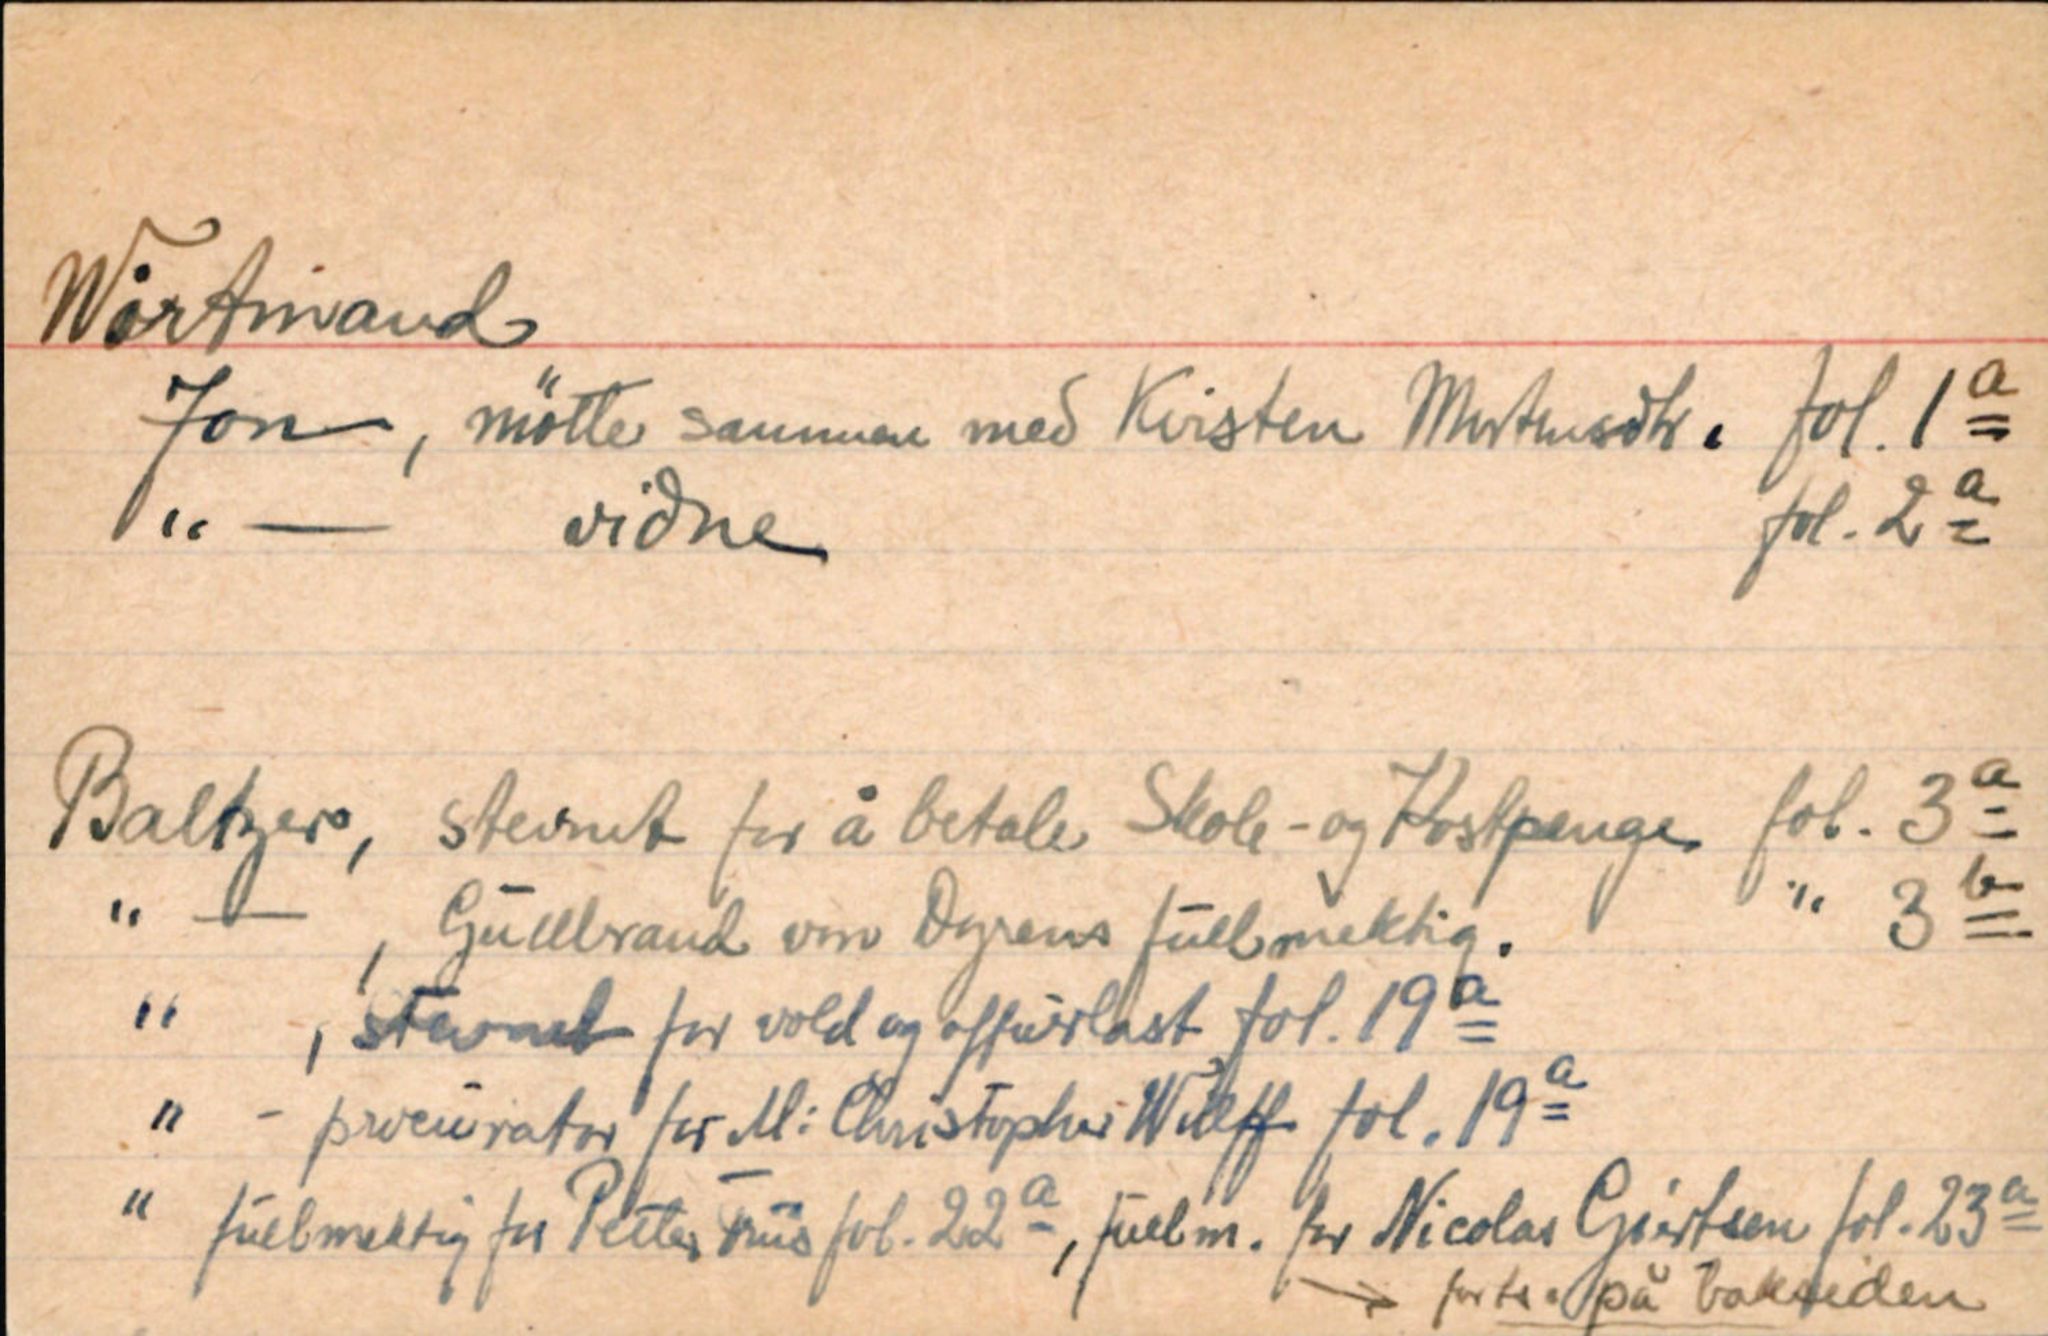 Wortmand
Jon, mötte sammen med Kirsten Mortensdtr. fol. 1a
" — vidne fol. 2a
Baltzer, stevnet for å betale Skole- og Kostpenge fol. 3a
" — , Gudbrand von Dyrens fullmektig. " 3b
" , stevnet for vold og offurlast fol. 19a
" - procurator for M: Christopher Wulff fol. 19a
" fullmektig for Petter Friis fol. 22a, fullm. for Nicolas Giertsen fol. 23a
→ forts. på baksiden